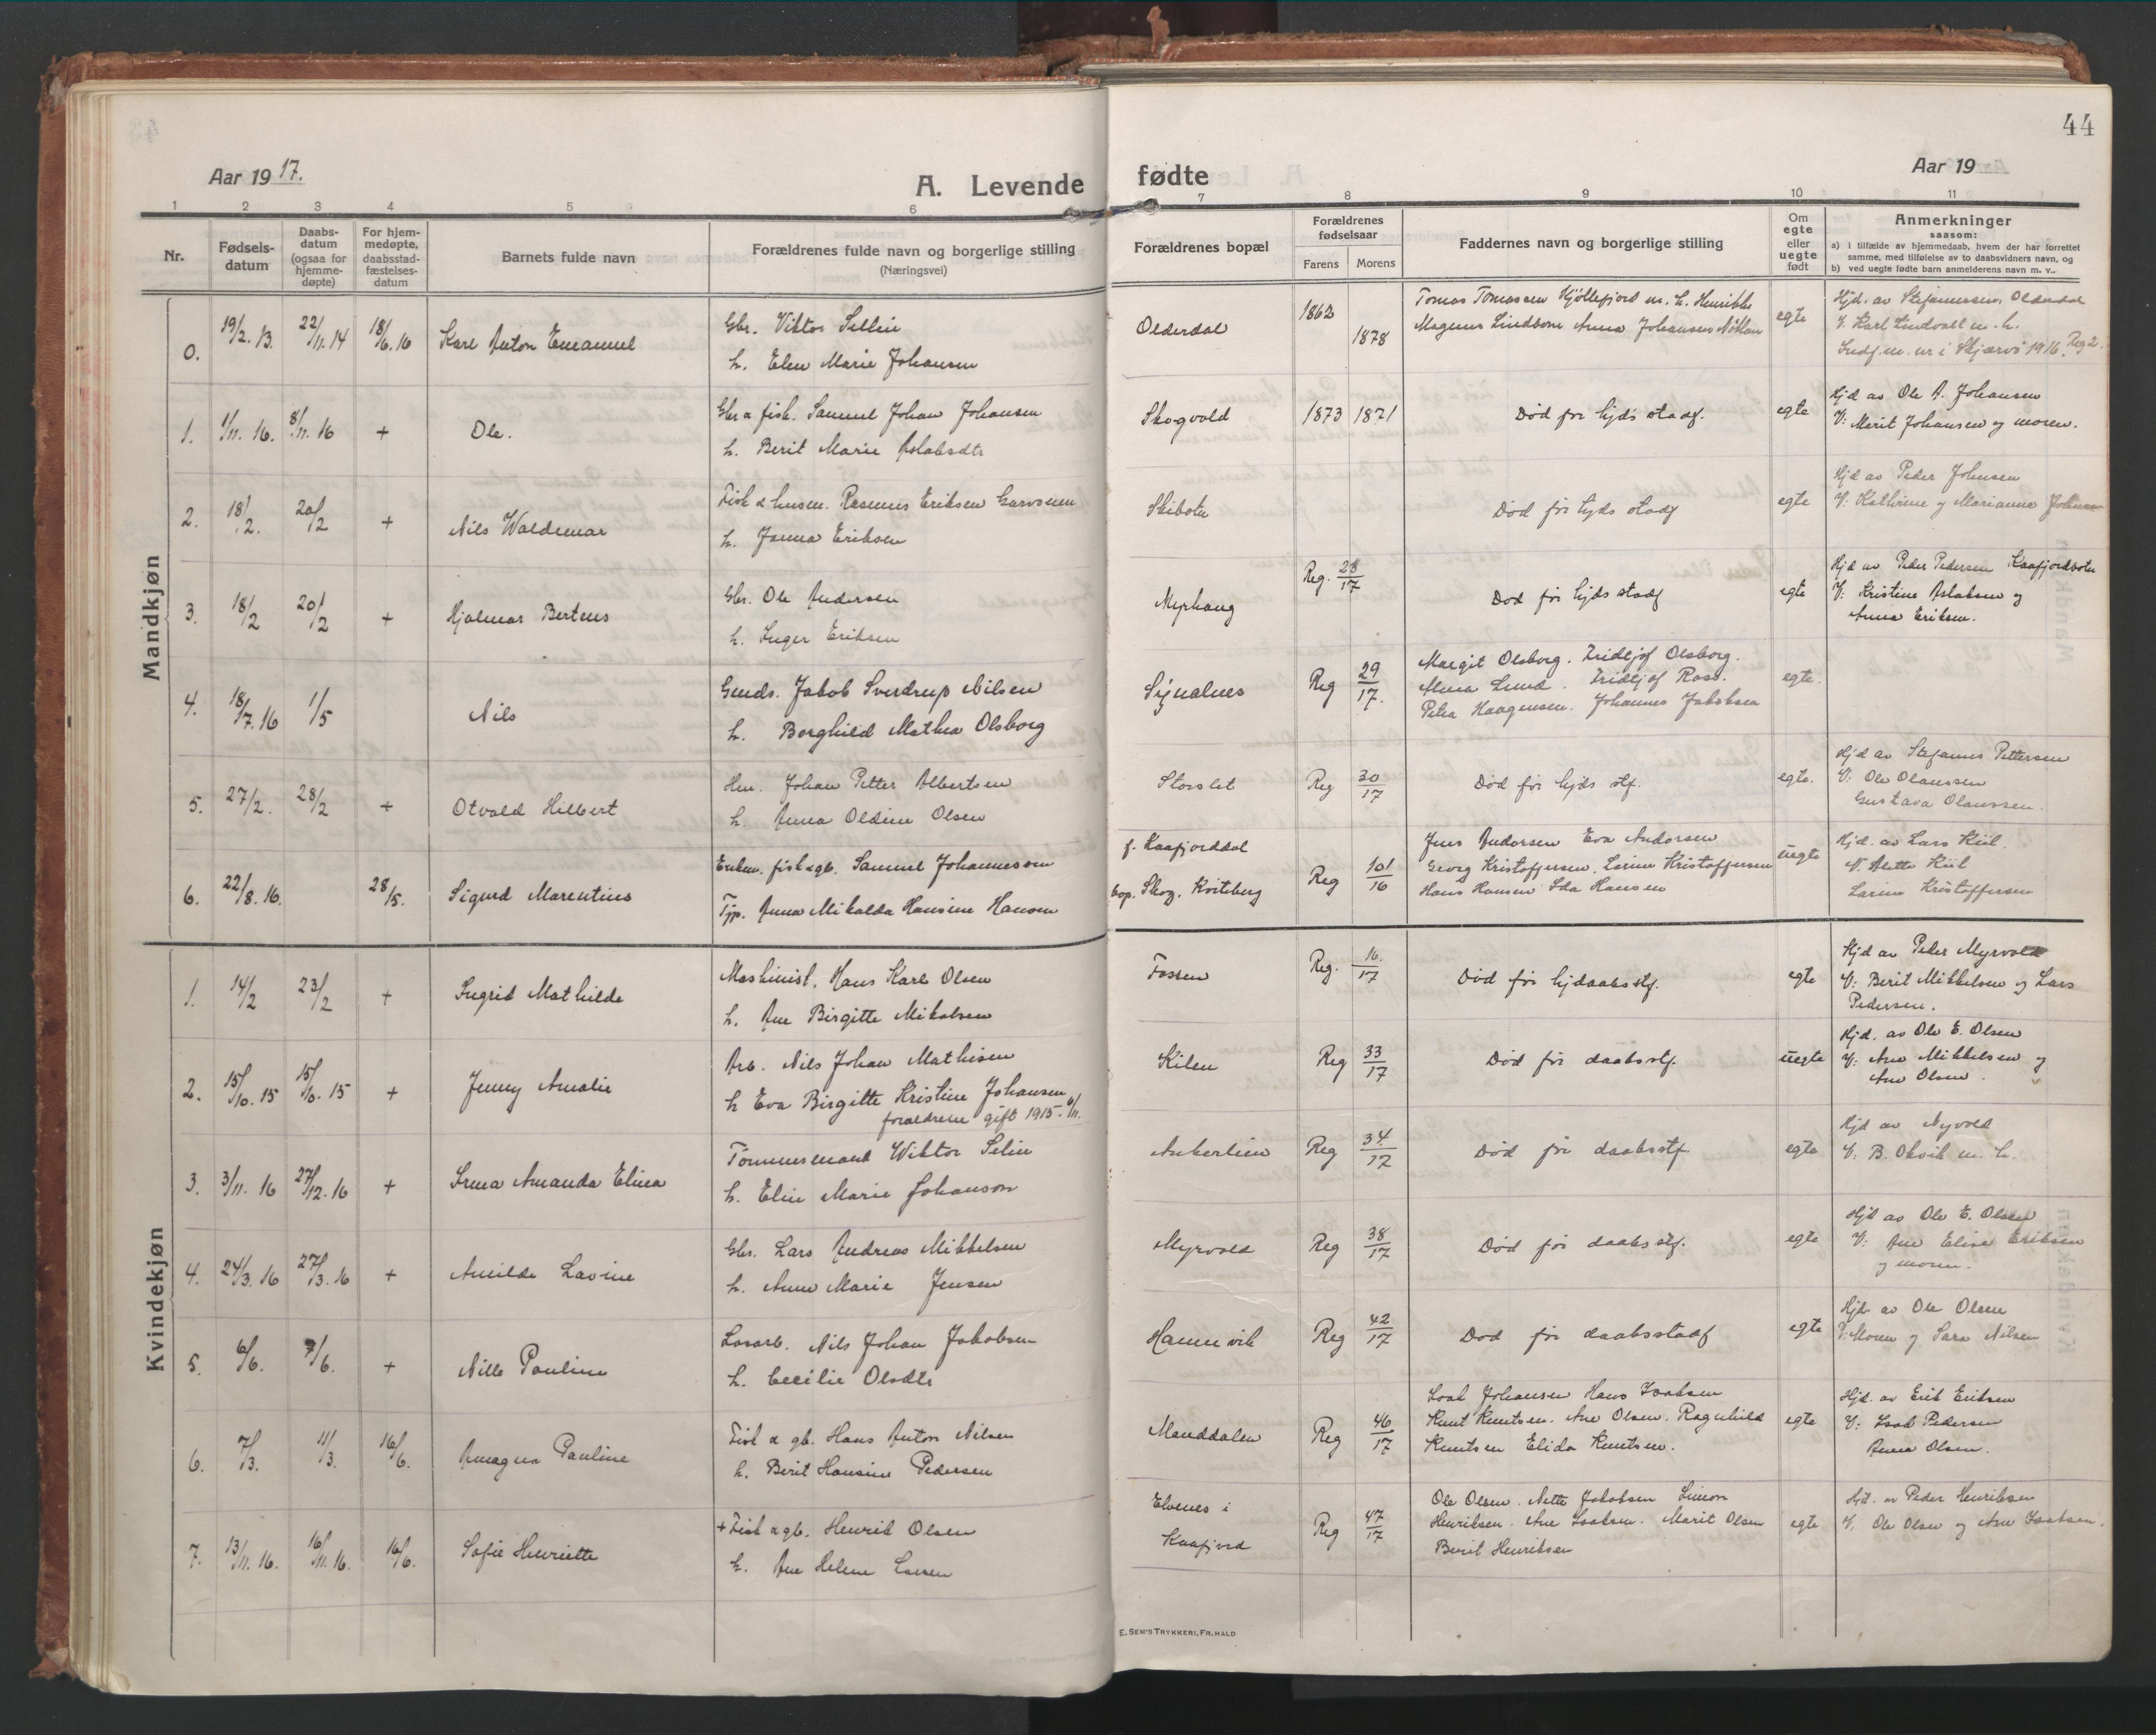 44
Aar 1917.
A. Levende
fødte
Aar 19
1 2 3 4 5 6 7 8 9 10 11
Nr.
Fødsels-
datum
Daabs-
datum
(ogsaa for
hjemme-
døpte)
For hjem-
medøpte,
daabsstad-
fæstelses-
datum
Barnets fulde navn
Forældrenes fulde navn og borgerlige stilling
(Næringsvei)
Forældrenes bopæl
Forældrenes
fødselsaar
Farens Morens
Faddernes navn og borgerlige stilling
Om
egte
eller
uegte
født
Anmerkninger
saasom:
a) i tilfælde av hjemmedaab, hvem der har forrettet
samme, med tilføielse av to daabsvidners navn, og
b) ved uegte fødte barn anmelderens navn m. v..
Mandkjøn
0. 19/2. 13. 22/11. 14 18/6. 16 Karl Anton Emanuel
Gbr. Viktor Sellin
h. Elen Marie Johansen
Olderdal 1862 1878
Tomas Tomassen Kjøllefjord m. h. Henrikke
Magnus Lindbom Anna Johansen
egte
Hjd. av Stefanussen, Olderdal
V. Karl Lindvall m. h.
Indf. m. nr i Skjervø 1916. Reg 2.
1. 1/11. 16. 8/11. 16 + Ole.
Gbr & fisk. Samuel Johan Johansen
h. Berit Marie Aslaksdtr
Skogvold 1873 1871 Død før hjds stadf. egte
Hjd av Ole A. Johansen
V: Marit Johansen og moren.
2. 18/2. 20/2 + Nils Waldemar
Fisk & husm. Rasmus Eriksen
h. Janna Eriksen
Skibotn Død før hjds stadf egte
Hjd av Peder Johnsen
V: Kathrine og Marianna Johnsen
3. 18/2 20/2 + Hjalmar Berteus
Gbr. Ole Andersen
h. Inger Eriksen
Myrhaug Reg. 28/17 Død før hjds stadf egte
Hjd av Peder Pedersen Kaafjordbotn
V: Kristine Aslaksen og
Anna Eriksen.
4. 18/7. 16 1/5 Nils
Jakob Sverdrup Nilsen
h. Borghild Mathea Olsborg
Signalnes Reg 29/17.
Margit Olsborg. Fridtjof Olsborg.
Alma Lund. Fridtjof Ross.
Petra Haagensen. Johannes Jakobsen
egte.
5. 27/2. 28/2 + Otvald Hilbert
Hm. Johan Petter Albertsen
h. Anna Oldine Olsen
Storslet Reg 30/17 Død før hjds stf. egte.
Hjd av Stefanus Pettersen
V: Ole Olaussen
Gustava Olaussen.
6. 22/8. 16. 28/5. Sigurd Marentius
Enkem. fisk & gb. Samuel Johannessen
Tjp. Anna Mikalda Hansine Hansen
f. Kaafjorddal
bop. Skog, Kvitberg Reg 10/16
Jens Andersen Eva Andersen
Georg Kristoffersen. Larine Kristoffersen
Hans Hansen Ida Hansen
uegte
Hjd. av Lars Kiil.
V. Alette Kiil
Larine Kristoffersen
Kvindekjøn
1. 14/2 23/2 + Ingrid Mathilde
Maskinist. Hans Karl Olsen
h. Ane Birgitte Mikalsen
Fossen Reg. 16./17 Død før hjdaabsstf. egte
Hjd av Peder Myrvold
V: Berit Mikkelsen og Lars
Pedersen.
2. 15/10. 15 15/10. 15 + Jenny Amalie
Arb. Nils Johan Mathisen
h Eva Birgitte Kristine Johansen
forældrene gift 1915. 6/11.
Kilen Reg 33/17 Død før daabsstf. uegte
Hjd. av Ole E. Olsen
V: Ane Mikkelsen og
Ane Olsen.
3. 3/11. 16 27/12. 16 + Irma Amanda Elina
Tømmermand Wiktor Selin
h. Elin Marie Johanson
Ankerlien Reg 34/17 Død før daabsstf. egte
Hjd av Nyvold
V: B. Okvik m. h.
4. 24/3. 16 27/3. 16 + Amilda Lavine
Gbr. Lars Andreas Mikkelsen
h. Anne Marie Jensen
Myrvold Reg 38/17 Død før daabsstf. egte
Hjd av Ole E. Olsen
V: Ane Elise Eriksen
og moren.
5. 6/6. 7/6. + Nille Pauline
Løsarb. Nils Johan Jakobsen
h. Cecilie Olsdtr
Hamnvik Reg 42/17 Død før daabsstadf egte
Hjd av Ole Olsen
V: Moren og Sara Nilsen
6. 7/3. 11/3. 16/6. Amagna Pauline
Fisk & gb. Hans Anton Nilsen
h. Berit Hansine Pedersen
Manddalen Reg 46/17
Isak Johansen Hans Isaksen
Knut Knutsen. Ane Olsen. Ragnhild
Knutsen Elida Knutsen.
egte
Hjd. av Erik Eriksen
V: Isak Pedersen
Anna Olsen.
7. 13/11. 16. 16/11. 16. 16/6. Sofie Henriette
+ Fisk & gb. Henrik Olsen
h. Ane Helene Larsen
Elvenes i
Kaafjord Reg 47/17
Ole Olsen. Nette Jakobsen Simon
Henriksen. Ane Isaksen. Marit Olsen
Berit Henriksen
egte
Hjd. av Peder Henriksen
V. Ole Olsen og Ane Isaksen.
E. SEM'S TRYKKERI, FR. HALD